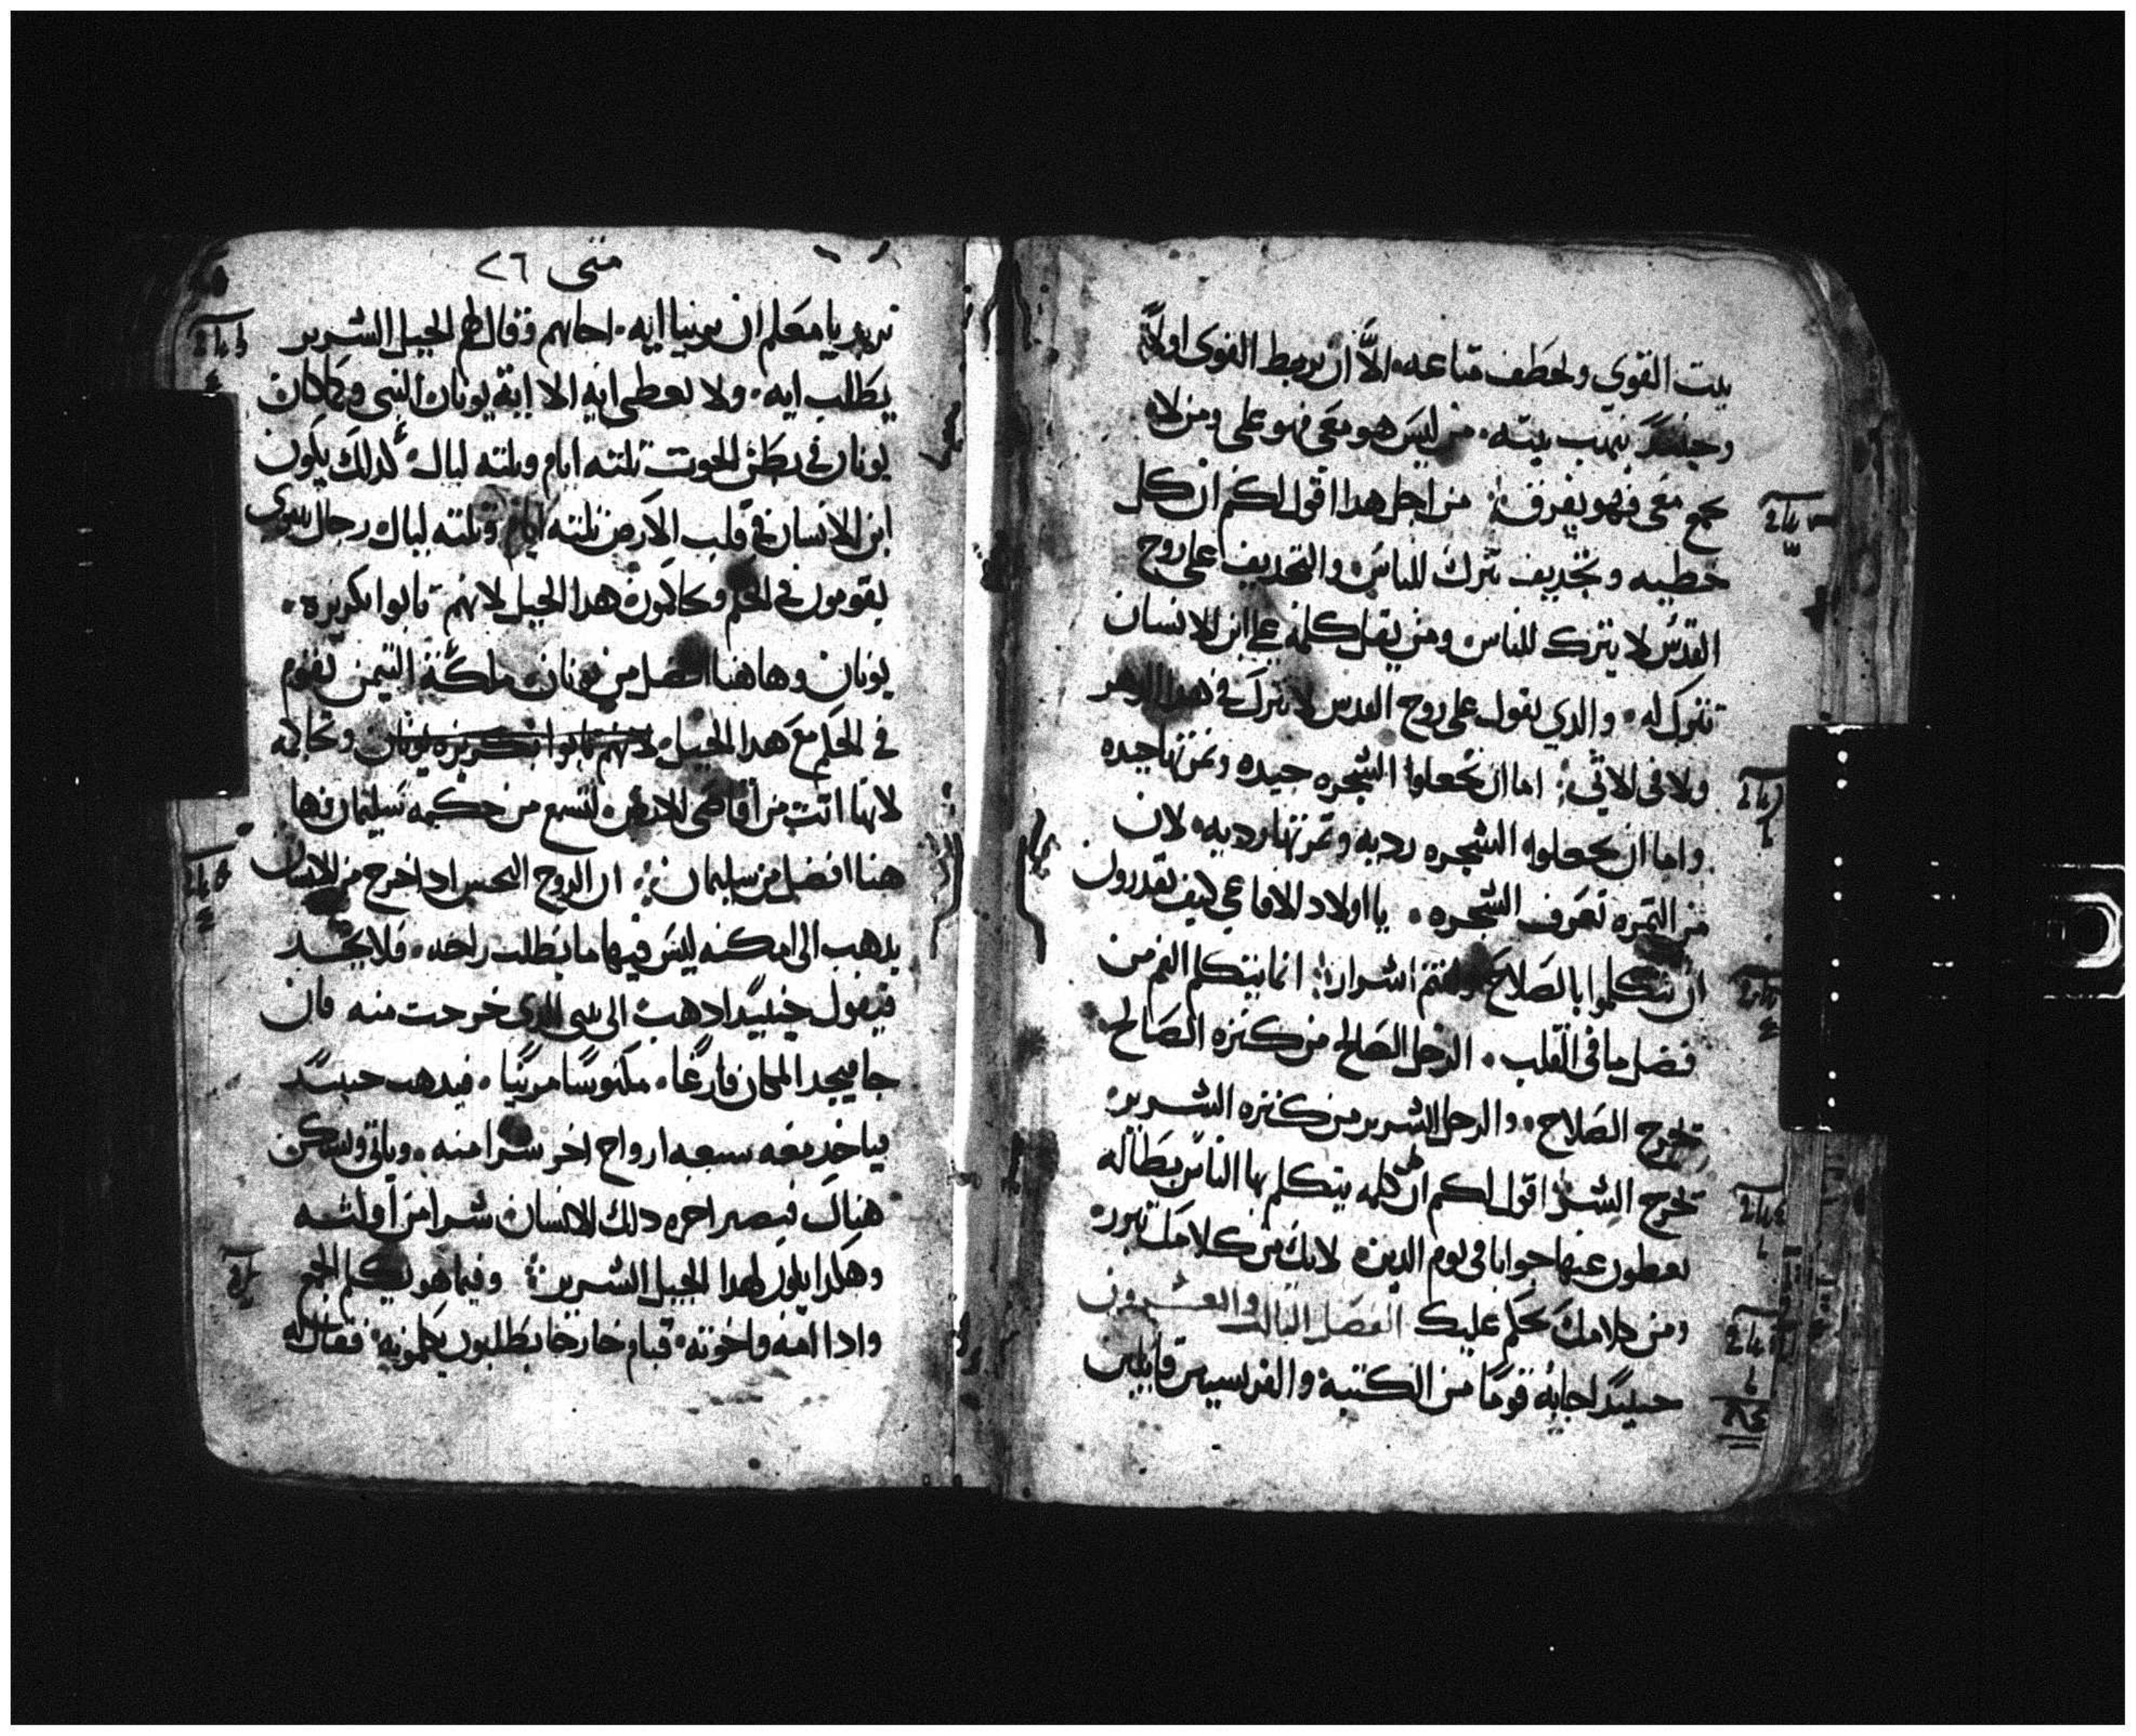 بيت القوي ولخطف متاعه الا ان يربط القوى اولاً
وحينيدً ينهب بيته من ليس هو معي فهو على ومن لا
يجمع معي فهو يفرق من اجل هدا اقول لكم ان كل
خطيه وتجديف تترك للناس والتجديف على روح
القدس لا يترك للناس ومن يقل كلمة على ابن الانسان
تترك له والدي يقول على روح القدس لا تترك في هدا الدهر
ولا في الاتي اما ان تجعلوا الشجره جيده وتمرتها جيده
واما ان تجعلوا الشجره رديه وتمرتها رديه لان
من التمره تعرف الشجره يا اولاد الافاعي كيف تقدرون
ان تتكلموا بالصلاح وانتم اشرار انما يتكلم الفم من
فضل ما في القلب الرجل الصالح من كنزه الصالح
يخرج الصلاح والرجل الشرير من كنزه الشرير
يخرج الشر اقول لكم ان كل كلمه يتكلم بها الناس بطاله
يعطون عنها جوابا في يوم الدين لانك من كلامك تبرر
ومن كلامك يحكم عليك الفصل التالت والعشرون
حينيدً اجابه قومًا من الكتبة والفريسيين قايلين
متى ٢٦
نريد يا معلم ان يرينا ايه اجابهم وقال لهم الجيل الشرير
يطلب ايه ولا يعطى ايه الا اية يونان النبي وكما كان
يونان في بطن الحوت تلته ايام وتلته ليال كدلك يكون
ابن الانسان في قلب الارض تلته ايام وتلته ليال رجال نينوى
يقومون في الحكم ويحاكمون هدا الجيل لانهم تابوا بكريزه
يونان وهاهنا افضل من يونان ملكة التيمن تقوم
في الحكم مع هدا الجيل لانهم تابوا بكريزه يونان وتحاكمه
لانها اتت من اقاصى الارض لتسمع من حكمه سليمان وها
هنا افضل من سليمان ان الروح النجس ادا خرج من الانسان
يدهب الى امكنه ليس فيها ما يطلب راحه فلا يجد
فيقول حينيدًا ادهب الى بيتي الدي خرجت منه فان
جا فيجد المكان فارغًا مكنوسًا مزينًا فيدهب حينيدً
فياخد معه سبعه ارواح اخر شرا منه وياتي ويسكن
هناك فيصير اخره دلك الانسان شرا من اوليته
وهكدا يكون لهدا الجيل الشرير وفيما هو يكلم الجمع
وادا امه واخوته قيام خارجا يطلبون يكلمونه فقال له